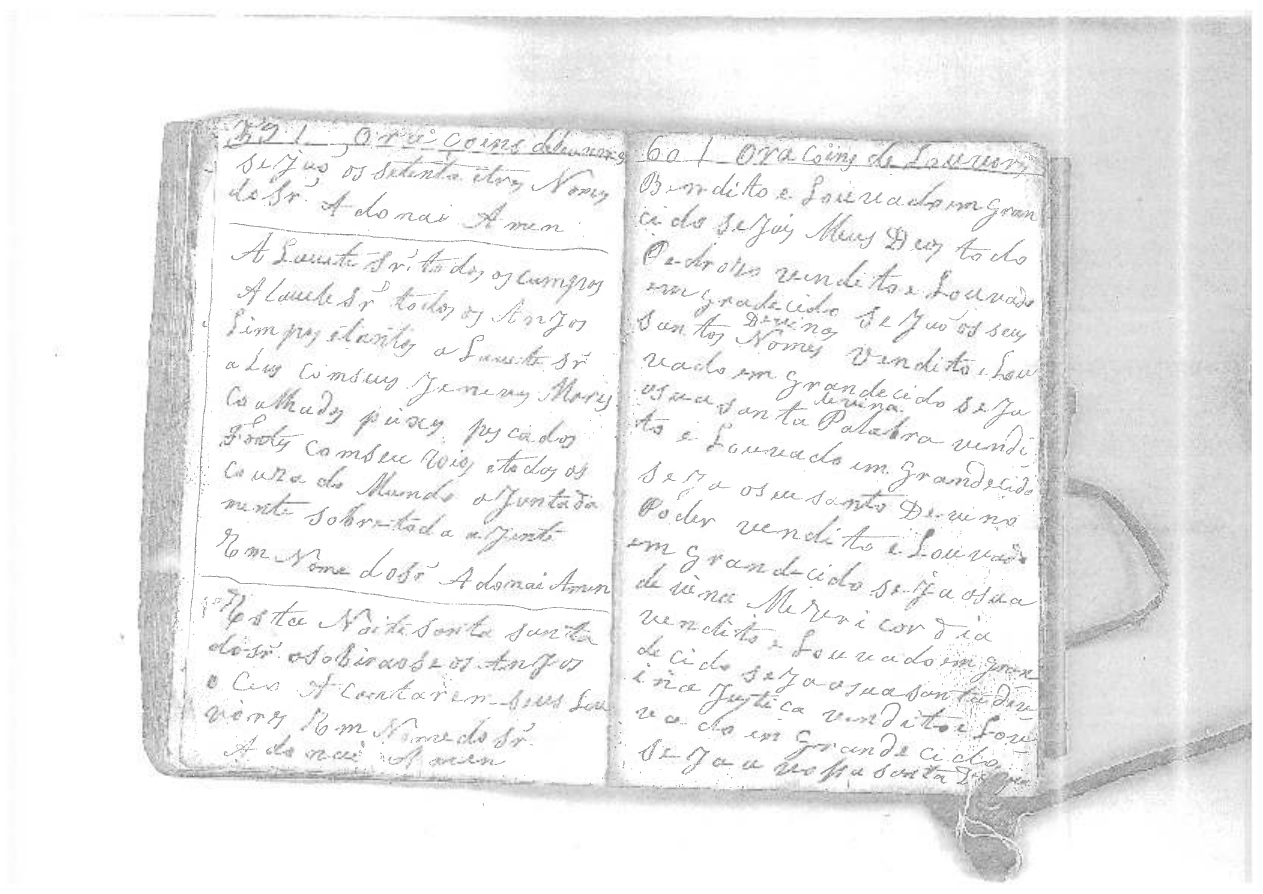 59 | Oracoins deLouvores
seJuo os setenta etres Nomes
do Sr. Adonai Amen
A Louete Sr. todos os
Alouete Sr todos os AnJos
Limpos etantos a Louete Sr
a Lus Comseus Mares
Coalhados pixes pescados
Comseu etodos os
do Mundo aJuntada
mente sobretoda a Jente
Em Nome do Sr Adonai Amen
Esta Noite santa santa
do sr. osobiraose os AnJos
o Ceo A Cantarem seus Lou
vores Em Nome do Sr.
Adonai Amen
60 | Oracoins de Louvores
Bendito e Louvado em Gran
cido seJas Meus Deus todo
Pedrozo vendito e Louvado
em gradecido seJuo os seus
santos Devinos Nomes vendito e Lou
vado em grandecido seJa
osua santa devina Palabra vendi
to e Louvado em Grandecido
seJa oseu santo Devino
Poder vendito e Louvado
em grandecido seJa osua
devina Mezericordia
vendito e Louvado em gran
decido seJa osua santa dev
ina Justica vendito e Lou
vado em Grandecido
seJa a vossa santa